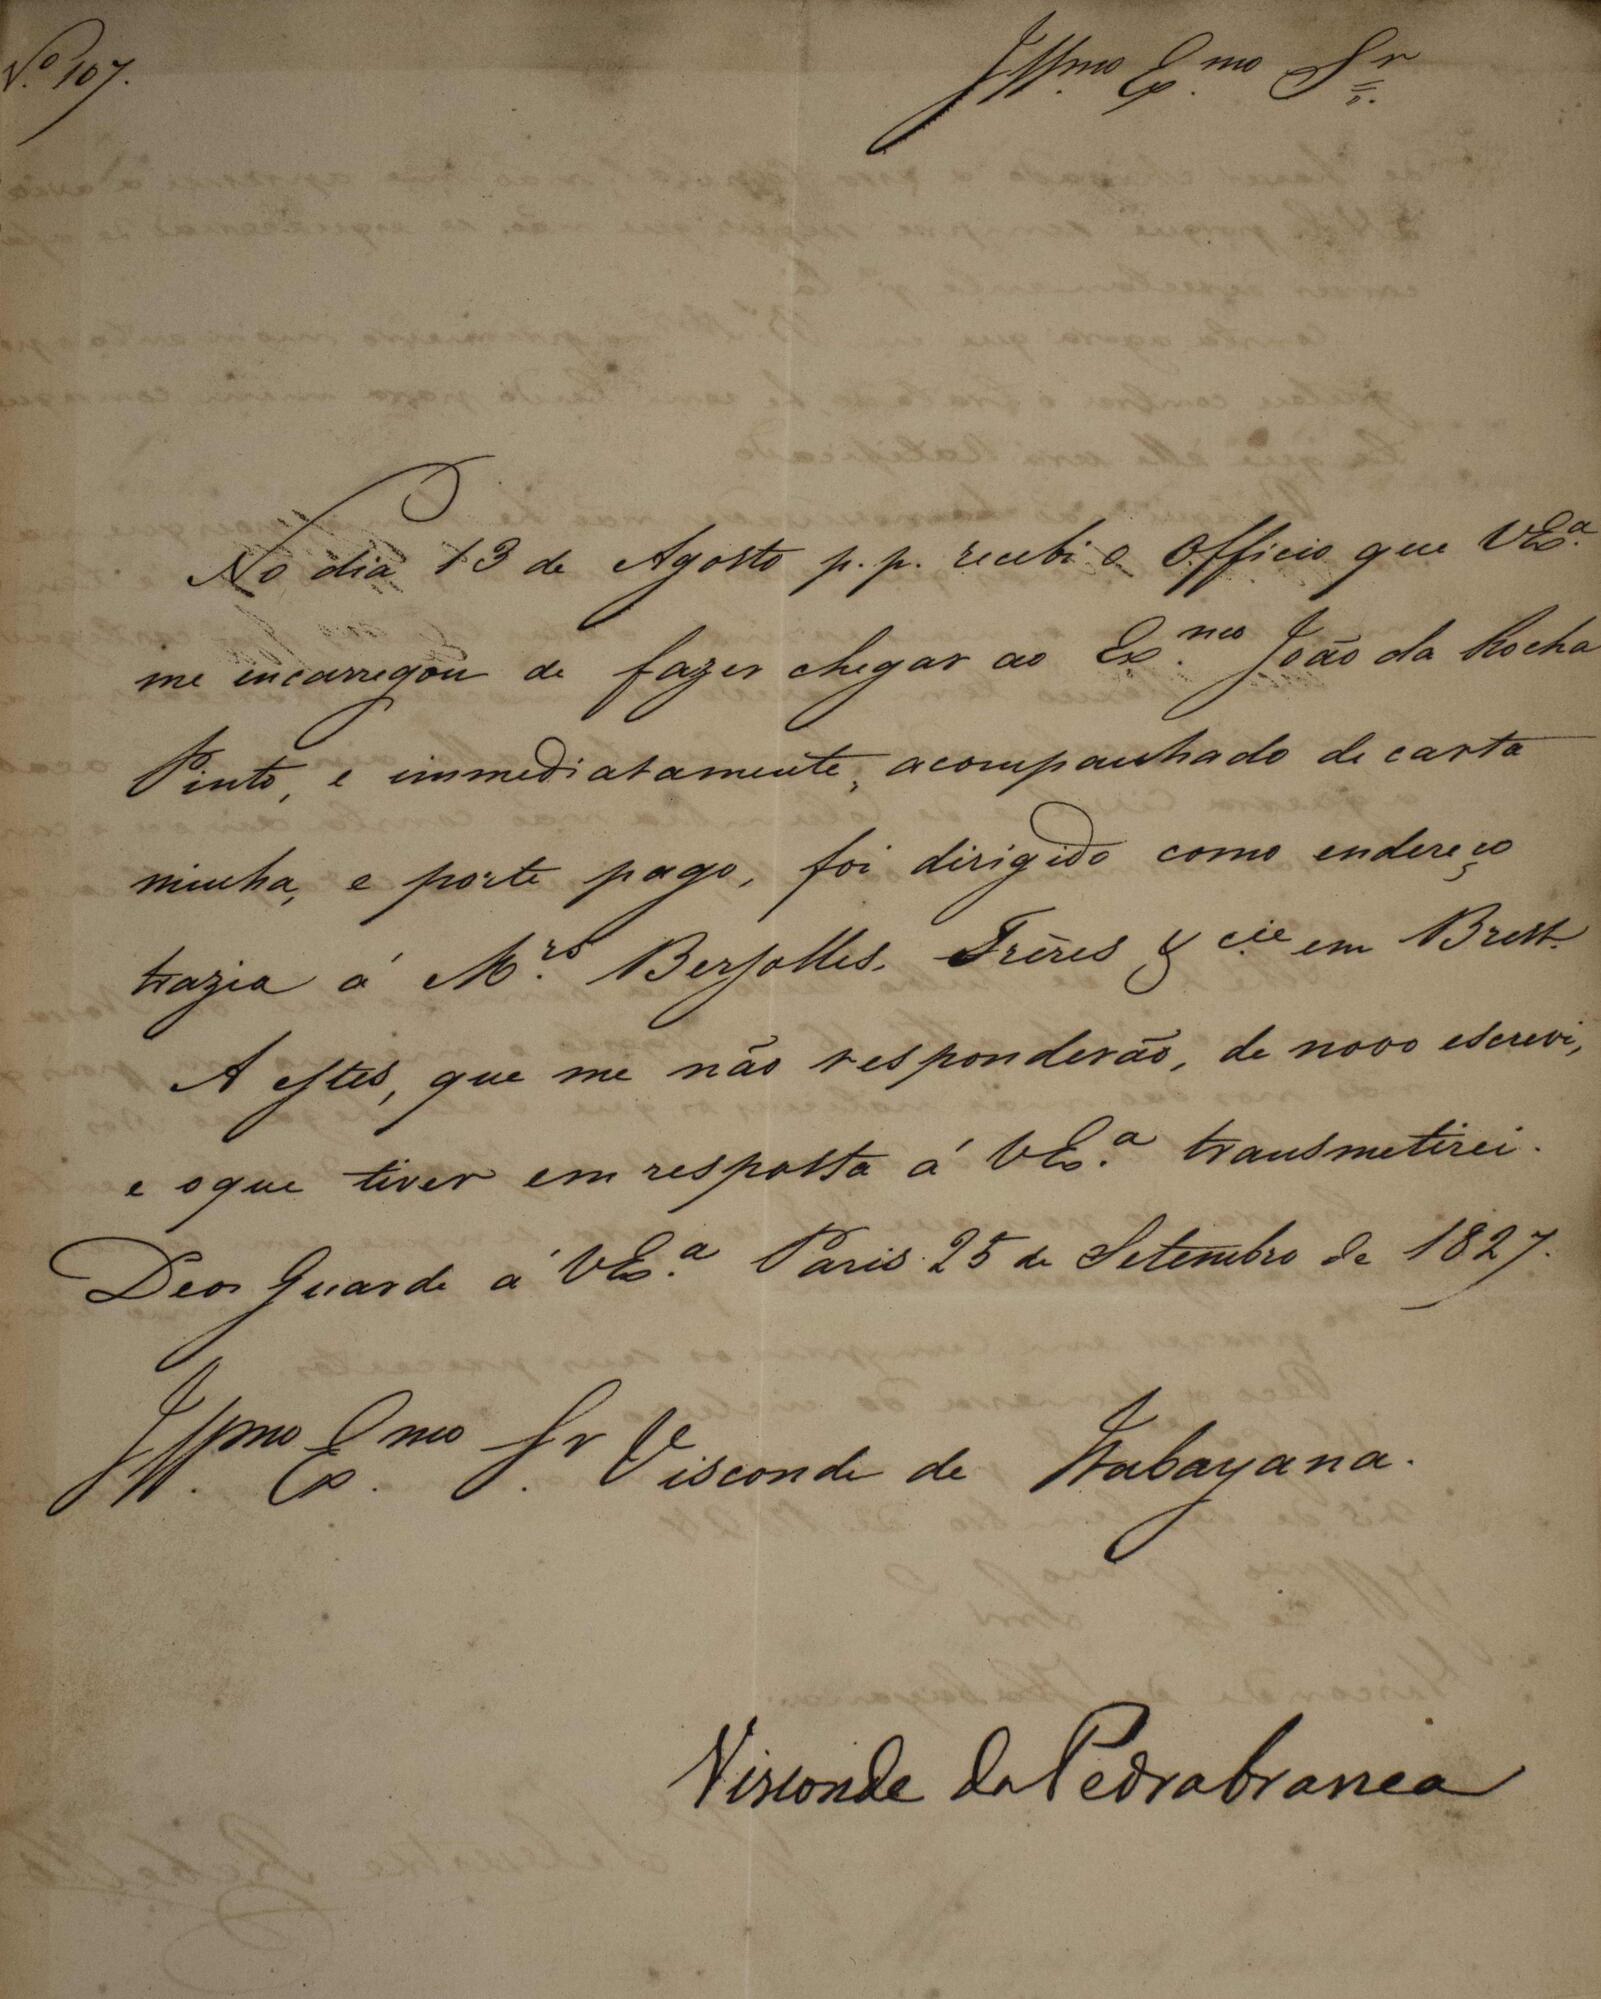 N.º 107.
Ill.mo Ex.mo Sr.
No dia 13 de Agosto p.p. recebi o Officio que VEx.ª
me encarregou de fazer chegar ao Ex.mo João da Rocha
Pinto, e immediatamente, acompanhado de carta
minha, e porte pago, foi dirigido como endereço
trazia á M.rs Berjolles. Frères & cie em Brest.
A estes, que me não responderão, de novo escrevi,
e oque tiver em resposta á VEx.ª transmetirei.
Deos Guarde á VEx.ª Paris 25 de Setembro de 1827.
Ill.mo Ex.mo Sr. Visconde de Itabayana.
Visconde da Pedrabranca